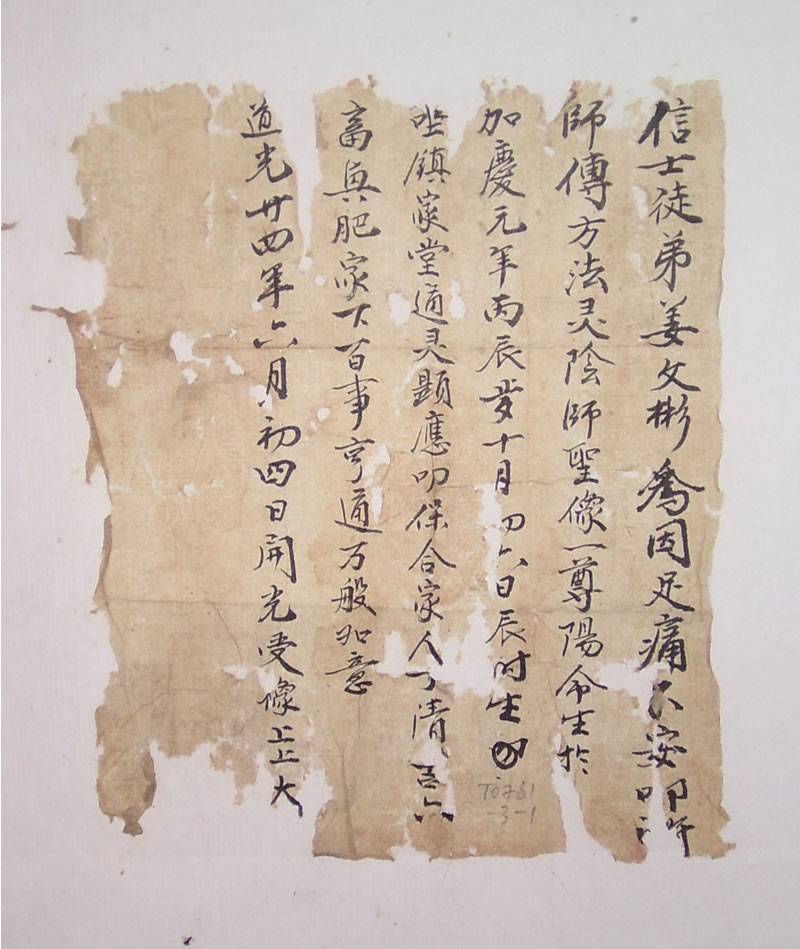 信士徒弟姜文彬為因足痛不安
師傳方法灵陰師聖像一尊陽命生於
加慶元年丙辰歲十月初六日辰时生
坐鎮家堂通灵顕應叩保合家人丁清吉六
畜興肥家下百事亨通万般如意
道光廿四年六月初四日開光受像上上大
T0761
-3-1